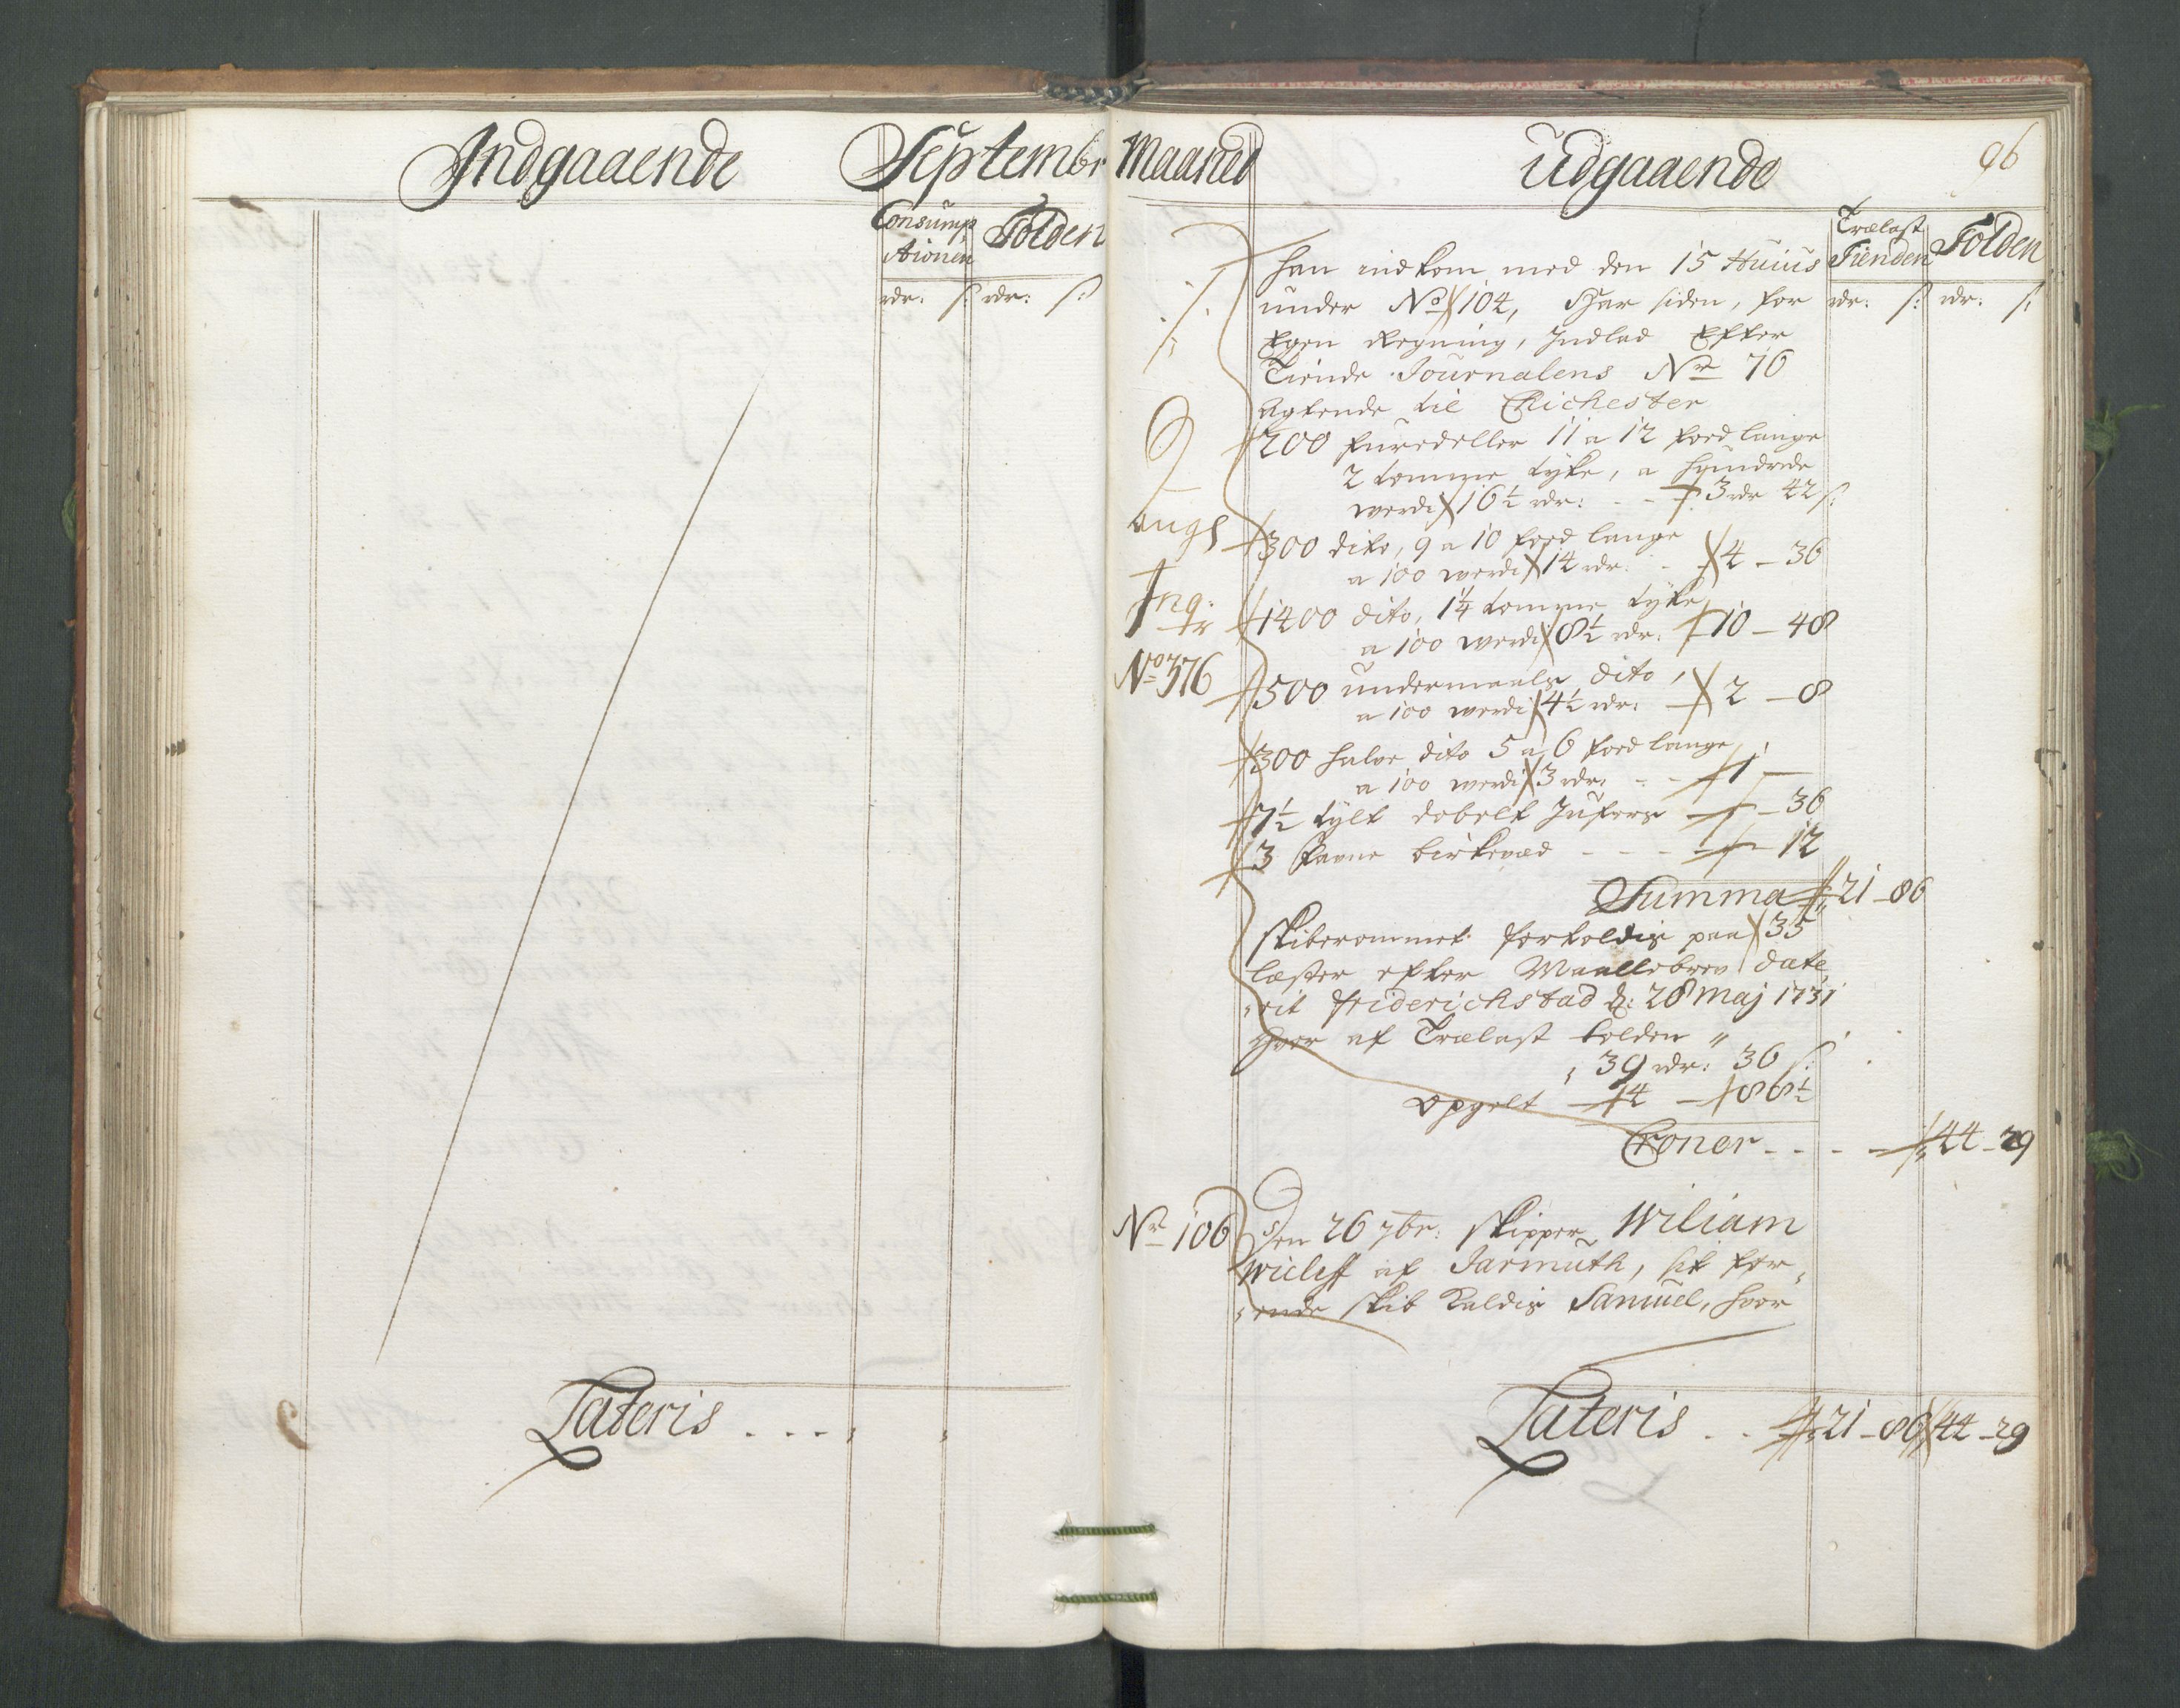 Indgaaende Septembr Maaned Udgaaende
96
Consump
tionen
Tolden
rdr: s: rdr: s:
Lateris
Trælast
Tienden
Tolden
rdr: s: rdr: s:
han indkom med den 15 Huius
under No 104, har siden, for
Egen Regning, Indlad Efter
Tiende Journalens Nr 76
Agtende til Chichester
200 furedeller 11 a 12 foed lange
2 tomme tyke, a hundrede
werdi 16½ rdr: 3 rdr 42 s:
300 dito, 9 a 10 foed lange
a 100 werdi 14 rdr: 4 - 36
1400 dito, 1¼ tomme tyke
a 100 werdi 8½ rdr: 10 - 48
No 376
500 undermaals dito,
a 100 werdi 4½ rdr: 2 - 8
300 halve dito 5 a 6 foed lange
a 100 werdi 3 rdr: 1 -
7½ tylt dobelt Jufers - 36
3 favne birkeved - 12
Summa 21 - 86
Skiberommet forholdis paa 35
læster efter Maallebrev date
rit Friderichstad d: 28 Maj 1731
hvor af Trælast tolden
39 rdr: 36 s:
opgelt 4 - 88½
Croner 44 - 29
Nr 106
Den 26 7br: Skipper Wiliam
af Jarmuth, sit før
ende Skib Kaldis Samuel, hvor
Lateris 21 - 86 44 - 29